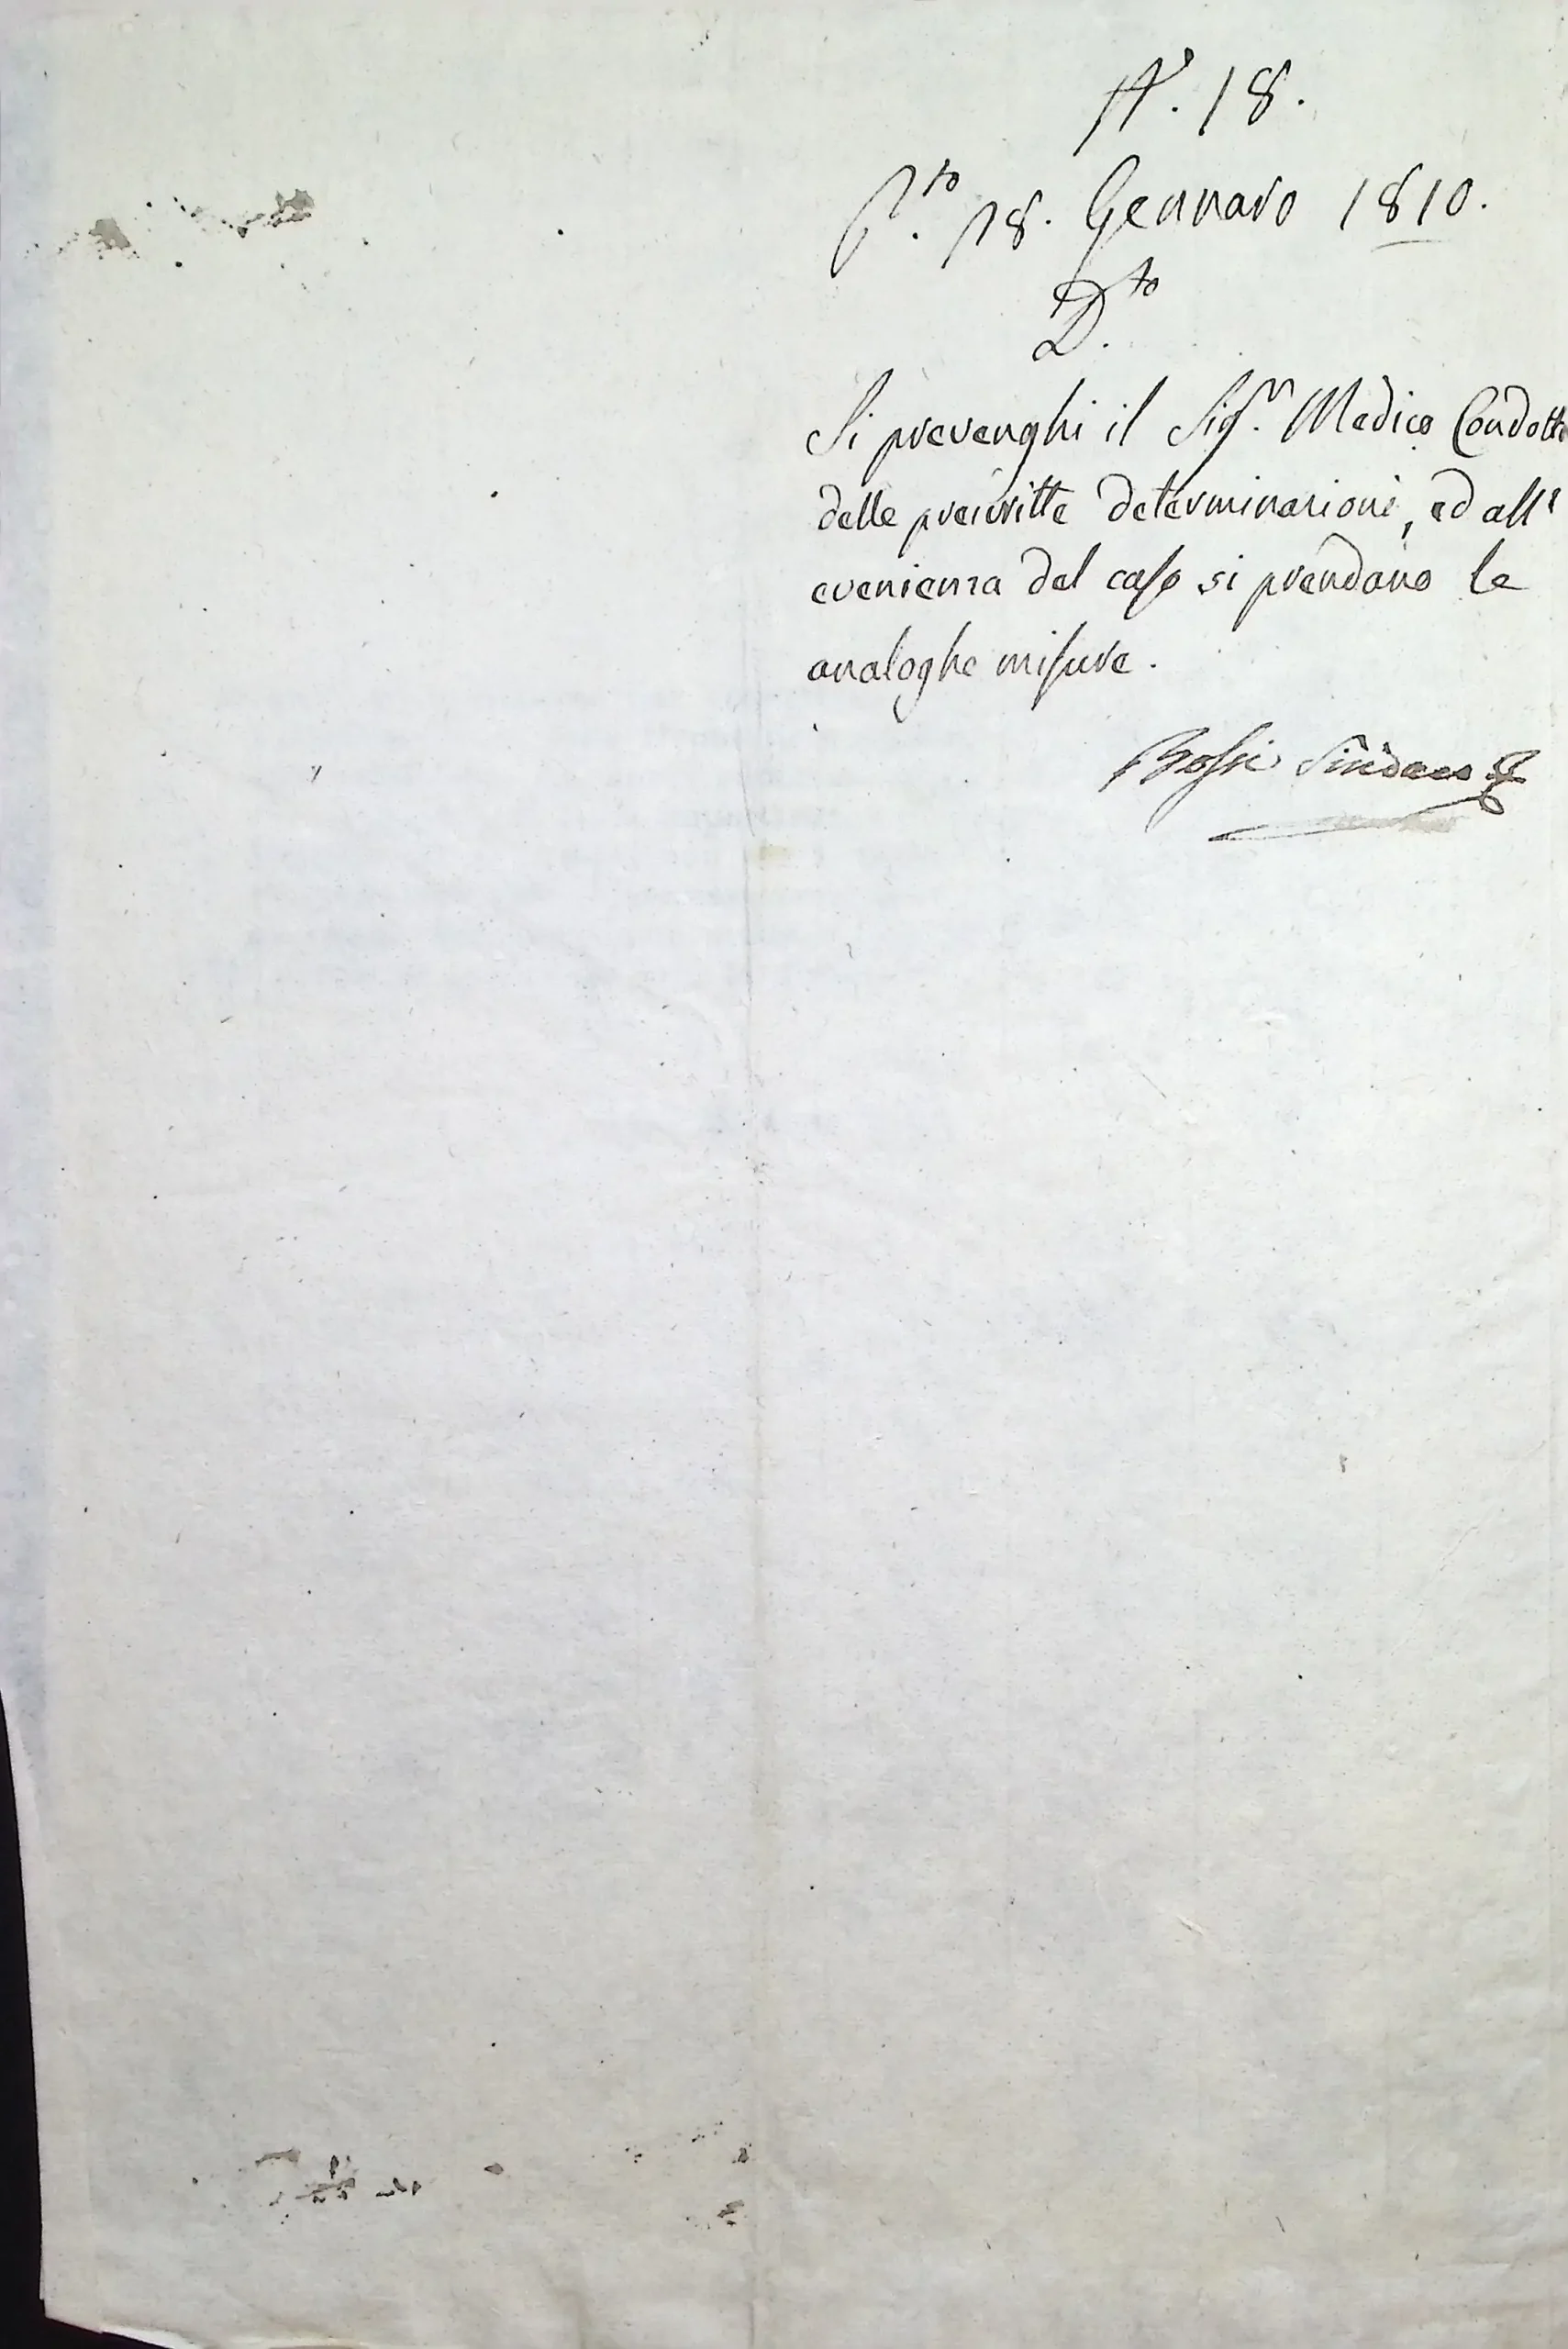 N.° 18.
P.to 18. Gennaro 1810.
D.to
Si prevenghi il Sig.r Medico Condotto
delle prescritte determinazioni, ed all'
evenienza del caso si prendano le
analoghe misure.
Bossi Sindaco